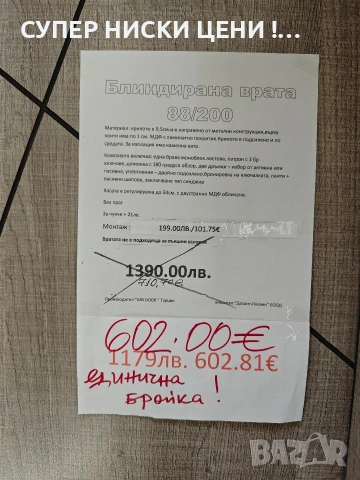 СУПЕР НИСКИ ЦЕНИ !...
Блиндирана врата
88/200
Материал: крилото е 9,5см и е направено от метални конструкция, върху
които има по 1 см. МДФ с ламинатно покритие. Крилото е подсилено и по
средата. За изолация има каменна вата.
Комплекта включва: една брава моноблок, лостове, патрон с 5 бр
ключове, шпионка с 180 градуса обзор, две дръжки –
пасивна, уплътнение – двойно подсилено, бронировка на ключалката, панти +
пасивни шипове, заключване тип сандвич
Касата е регулируема до 34см. с двустранно МДФ обличане.
Без праг
За чупене + 21лв.
Монтаж : 199.00ЛВ./101.75€
Вратата не е подходяща за външни условия
1390.00лв.
710,70€
602.00€
1179лв. 602.81€
единична !
бройка
BAZAR